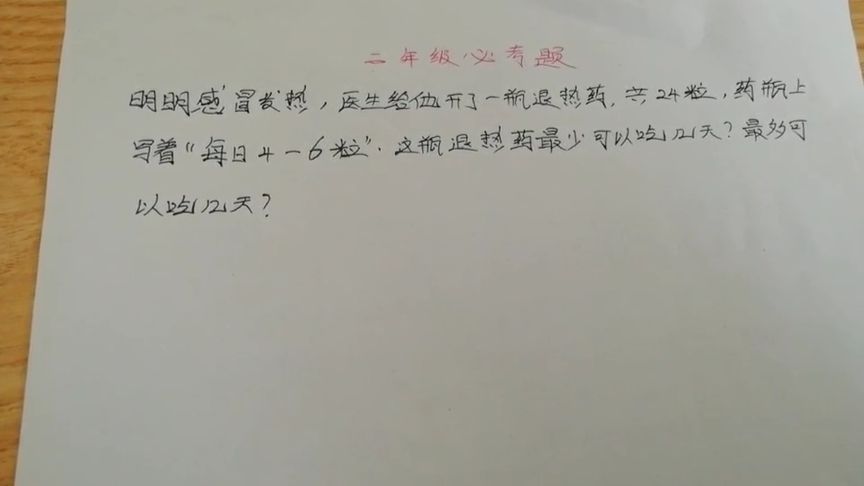 二年级必考题
明明感冒发热，医生给他开了一瓶退热药，共24粒，药瓶上
写着“每日4－6粒”．这瓶退热药最少可以吃几天？最多可
以吃几天？